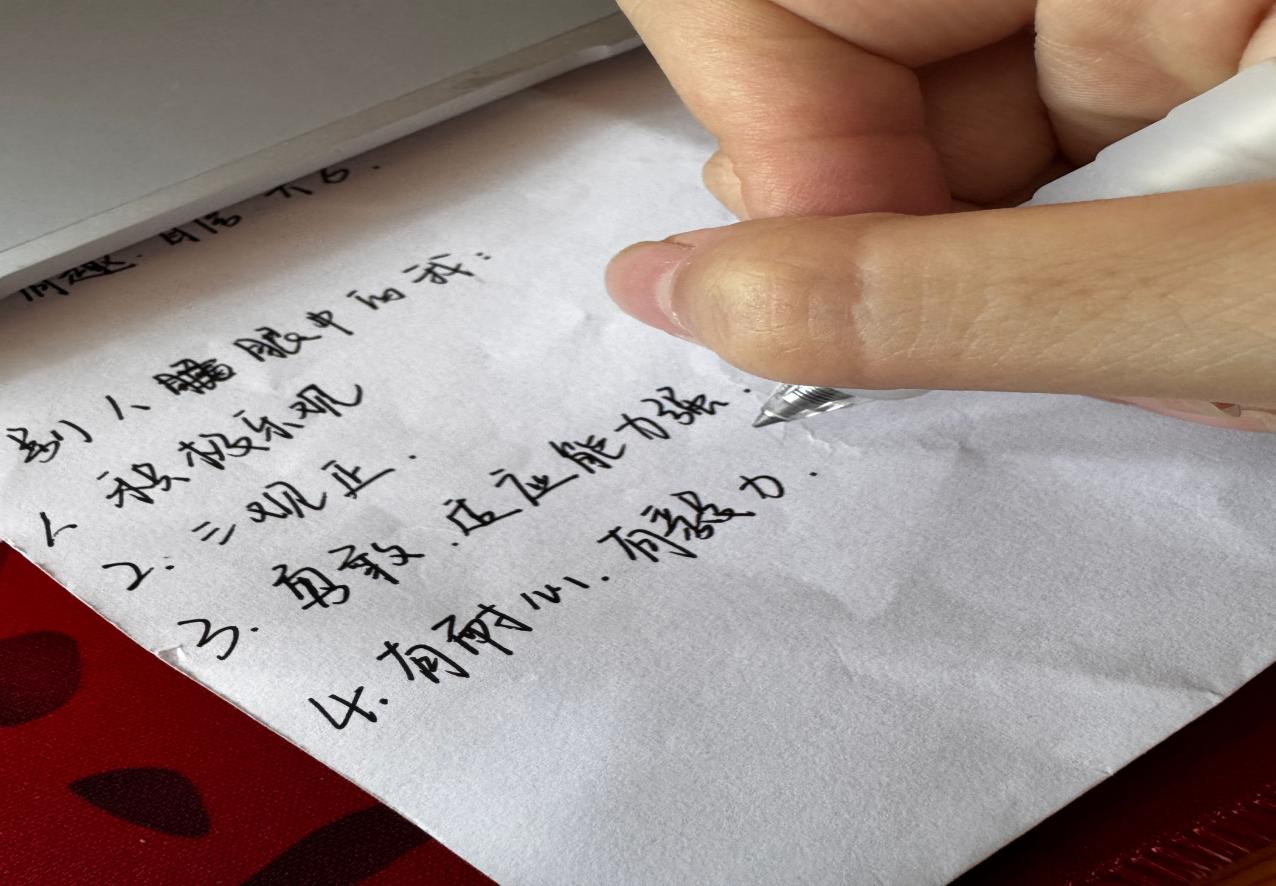 有趣. 自信 大方.
别人眼中的我:
1. 积极乐观
2. 三观正.
3. 勇敢. 适应能力强.
4. 有耐心. 有毅力.